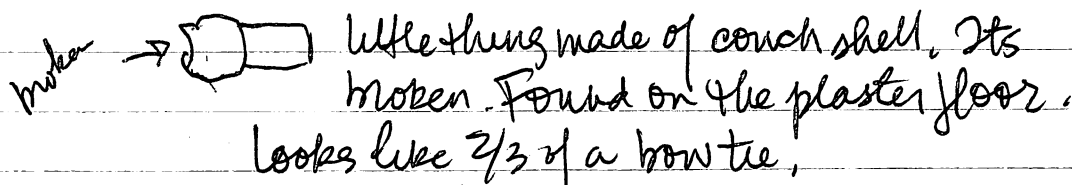 broken → little thing made of conch shell. Its
broken. Found on the plaster floor.
Looks like 2/3 of a bow tie.